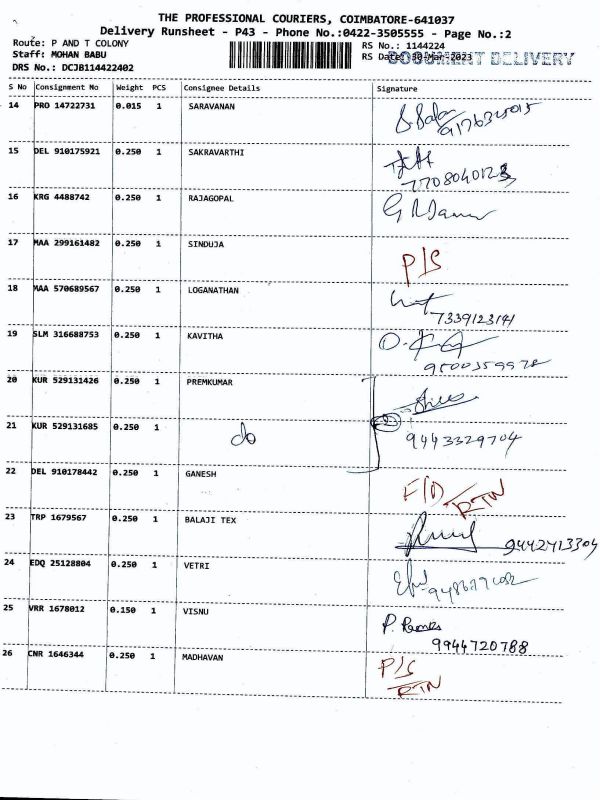 THE PROFESSIONAL COURIERS, COIMBATORE-641037
Delivery Runsheet - P43 - Phone No.:0422-3505555 - Page No.:2
Route: P AND T COLONY
RS No.: 1144224
Staff: MOHAN BABU
RS Date: 30-Mar-2023
DOCUMENT DELIVERY
DRS No.: DCJB114422402
S No Consignment No Weight PCS Consignee Details Signature
14 PRO 14722731 0.015 1 SARAVANAN
15 DEL 910175921 0.250 1 SAKRAVARTHI
16 KRG 4488742 0.250 1 RAJAGOPAL
17 MAA 299161482 0.250 1 SINDUJA P/S
18 MAA 570689567 0.250 1 LOGANATHAN
7339123141
19 SLM 316688753 0.250 1 KAVITHA
20 KUR 529131426 0.250 1 PREMKUMAR
21 KUR 529131685 0.250 1 do
9443329704
22 DEL 910178442 0.250 1 GANESH
RTN
23 TRP 1679567 0.250 1 BALAJI TEX
9442713304
24 EDQ 25128804 0.250 1 VETRI
25 VRR 1678012 0.150 1 VISNU
9944720788
26 CNR 1646344 0.250 1 MADHAVAN P/S
RTN